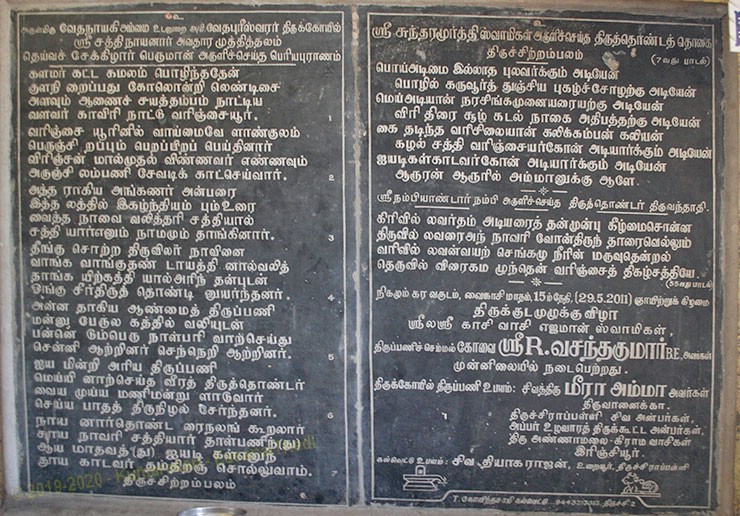 உ
அருள்மிகு வேதநாயகி அம்மை உடனுறை அரு. வேதபுரீஸ்வரர் திருக்கோயில்
ஸ்ரீ சத்திநாயனார் அவதார முத்தித்தலம்
தெய்வச் சேக்கிழார் பெருமான் அருளிச்செய்த பெரியபுராணம்
களமர் கட்ட கமலம் பொழிந்ததேன்
குளநி றைப்பது கோலொன்றி லெண்டிசை
அளவும் ஆணைச் சயத்தம்பம் நாட்டிய
வளவர் காவிரி நாட்டு வரிஞ்சையூர். 1
வரிஞ்சை யூரினில் வாய்மைவே ளாண்குலம்
பெருஞ்சி றப்பும் பெறப்பிறப் பெய்தினார்
விரிஞ்சன் மால்முதல் விண்ணவர் எண்ணவும்
அருஞ்சி லம்பணி சேவடிக் காட்செய்வார். 2
அத்த ராகிய அங்கணர் அன்பரை
இத்த லத்தில் இகழ்ந்தியம் பும்உரை
வைத்த நாவை வலித்தரி சத்தியால்
சத்தி யார்எனும் நாமமும் தாங்கினார். 3
தீங்கு சொற்ற திருவிலர் நாவினை
வாங்க வாங்குதண் டாயத்தி னால்வலித்
தாங்க யிற்கத்தி யால்அரிந் தன்புடன்
ஓங்கு சீர்திருத் தொண்டி னுயர்ந்தனர். 4
அன்ன தாகிய ஆண்மைத் திருப்பணி
மன்னு பேருல கத்தில் வலியுடன்
பன்னெ டும்பெரு நாள்பரி வாற்செய்து
சென்னி ஆற்றினர் செந்நெறி ஆற்றினர். 5
ஐய மின்றி அரிய திருப்பணி
மெய்யி னாற்செய்த வீரத் திருத்தொண்டர்
வைய முய்ய மணிமன்று ளாடுவார்
செய்ய பாதத் திருநிழல் சேர்ந்தனர். 6
நாய னார்தொண்ட ரைநலங் கூறலார்
சாய நாவரி சத்தியார் தாள்பணிந்(து)
ஆய மாதவத்(து) ஐயடி கள்எனுந்
தூய காடவர் தந்திறஞ் சொல்லுவாம். 7
திருச்சிற்றம்பலம்
© 2019-2020
உ
ஸ்ரீ சுந்தரமூர்த்தி ஸ்வாமிகள் அருளிச்செய்த திருத்தொண்டத் தொகை
திருச்சிற்றம்பலம் (7வது பாடல்)
பொய்அடிமை இல்லாத புலவர்க்கும் அடியேன்
பொழில் கருவூர்த் துஞ்சிய புகழ்ச்சோழற்கு அடியேன்
மெய்அடியான் நரசிங்கமுனையரையற்கு அடியேன்
விரி திரை சூழ் கடல் நாகை அதிபத்தற்கு அடியேன்
கை தடிந்த வரிசிலையான் கலிக்கம்பன் கலியன்
கழல் சத்தி வரிஞ்சையர்கோன் அடியார்க்கும் அடியேன்
ஐயடிகள்காடவர்கோன் அடியார்க்கும் அடியேன்
ஆரூரன் ஆரூரில் அம்மானுக்கு ஆளே.
ஸ்ரீ நம்பியாண்டார் நம்பி அருளிச்செய்த திருத்தொண்டர் திருவந்தாதி.
கிரிவில் லவர்தம் அடியரைத் தன்முன்பு கீழ்மைசொன்ன
திருவில் லவரைஅந் நாவரி வோன்திருந் தாரைவெல்லும்
வரிவில் லவன்வயற் செங்கழு நீரின் மருவுதென்றல்
தெருவில் விரைகம முந்தென் வரிஞ்சைத் திகழ்சத்தியே.
(55வது பாடல்)
நிகழும் கர வருடம், வைகாசி மாதம், 15ம் தேதி, (29.5.2011) ஞாயிற்றுக் கிழமை
திருக்குடமுழுக்கு விழா
ஸ்ரீலஸ்ரீ காசி வாசி எஜமான் ஸ்வாமிகள்,
திருப்பணிச் செம்மல் கோவை ஸ்ரீ R. வசந்தகுமார் B.E., அவர்கள்
முன்னிலையில் நடைபெற்றது.
திருக்கோயில் திருப்பணி உபயம்: சிவத்திரு மீரா அம்மா அவர்கள்
திருவானைக்கா.
திருச்சிராப்பள்ளி சிவ அன்பர்கள்,
அப்பர் உழவாரத் திருக்கூட்ட அன்பர்கள்,
திரு அண்ணாமலை-கிராம வாசிகள்
இரிஞ்சியூர்.
கல்வெட்டு உபயம்: சிவ. தியாகராஜன், உறையூர், திருச்சிராப்பள்ளி
T. கோவிந்தசாமி கல்வெட்டு, திருச்சி-2